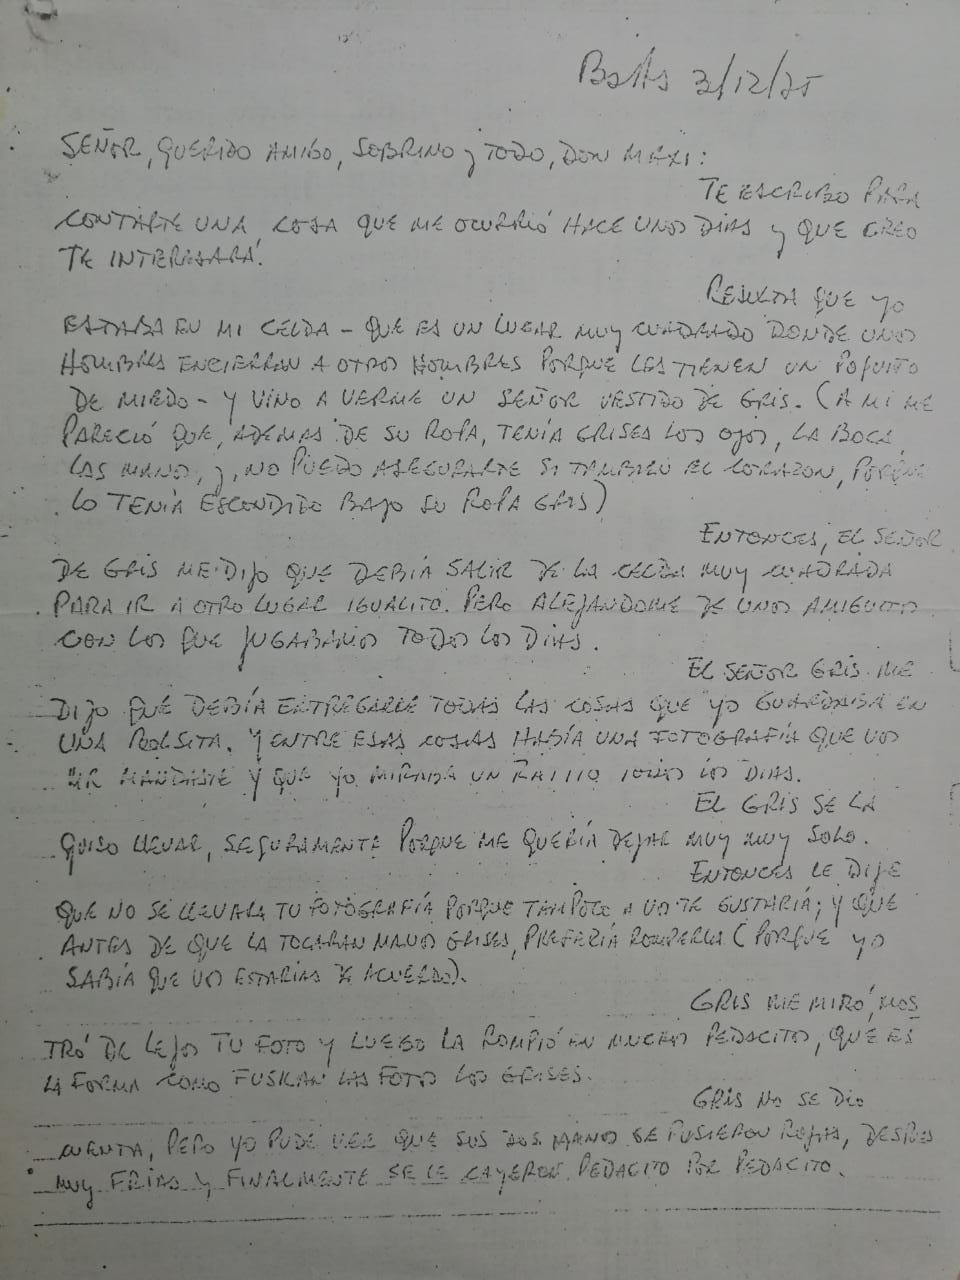 BsAs 3/12/75
SEÑOR, QUERIDO AMIGO, SOBRINO y TODO, DON MAXI:
TE ESCRIBO PARA
CONTARTE UNA COSA QUE ME OCURRIÓ HACE UNOS DIAS y QUE CREO
TE INTERESARÁ.
RESULTA QUE yo
ESTABA EN MI CELDA - QUE ES UN LUGAR MUY CUADRADO DONDE UNOS
HOMBRES ENCIERRAN A OTROS HOMBRES PORQUE LES TIENEN UN POQUITO
DE MIEDO - Y VINO A VERME UN SEÑOR VESTIDO DE GRIS. (A MI ME
PARECIÓ QUE, ADEMAS DE SU ROPA, TENÍA GRISES LOS OJOS, LA BOCA
LAS MANOS, y, NO PUEDO ASEGURARTE SI TAMBIEN EL CORAZON, PORQUE
LO TENÍA ESCONDIDO BAJO SU ROPA GRIS)
ENTONCES, EL SEÑOR
DE GRIS ME DIJO QUE DEBIA SALIR DE LA CELDA MUY CUADRADA
PARA IR A OTRO LUGAR IGUALITO. PERO ALEJANDOME DE UNOS AMIGUITOS
CON LOS QUE JUGABAMOS TODOS LOS DIAS.
EL SEÑOR GRIS ME
DIJO QUE DEBÍA ENTREGARLE TODAS LAS COSAS QUE yo GUARDABA EN
UNA BOLSITA. Y ENTRE ESAS COSAS HABÍA UNA FOTOGRAFÍA QUE VOS
ME MANDASTE Y QUE yo MIRABA UN RATITO TODOS LOS DIAS.
EL GRIS SE LA
QUISO LLEVAR, SEGURAMENTE PORQUE ME QUERÍA DEJAR MUY MUY SOLO.
ENTONCES LE DIJE
QUE NO SE LLEVARA TU FOTOGRAFÍA PORQUE TAMPOCO A VOS TE GUSTARÍA; Y QUE
ANTES DE QUE LA TOCARAN MANOS GRISES, PREFERÍA ROMPERLA (PORQUE yo
SABÍA QUE VOS ESTARIAS DE ACUERDO).
GRIS ME MIRÓ, MOS
TRÓ DE LEJOS TU FOTO Y LUEGO LA ROMPIÓ EN MUCHOS PEDACITOS, QUE ES
LA FORMA COMO FUSILAN LAS FOTOS LOS GRISES.
GRIS NO SE DIO
CUENTA, PERO yo PUDE VER QUE SUS DOS MANOS SE PUSIERON ROJAS, DESPUES
MUY FRIAS y FINALMENTE SE LE CAYERON PEDACITO POR PEDACITO.